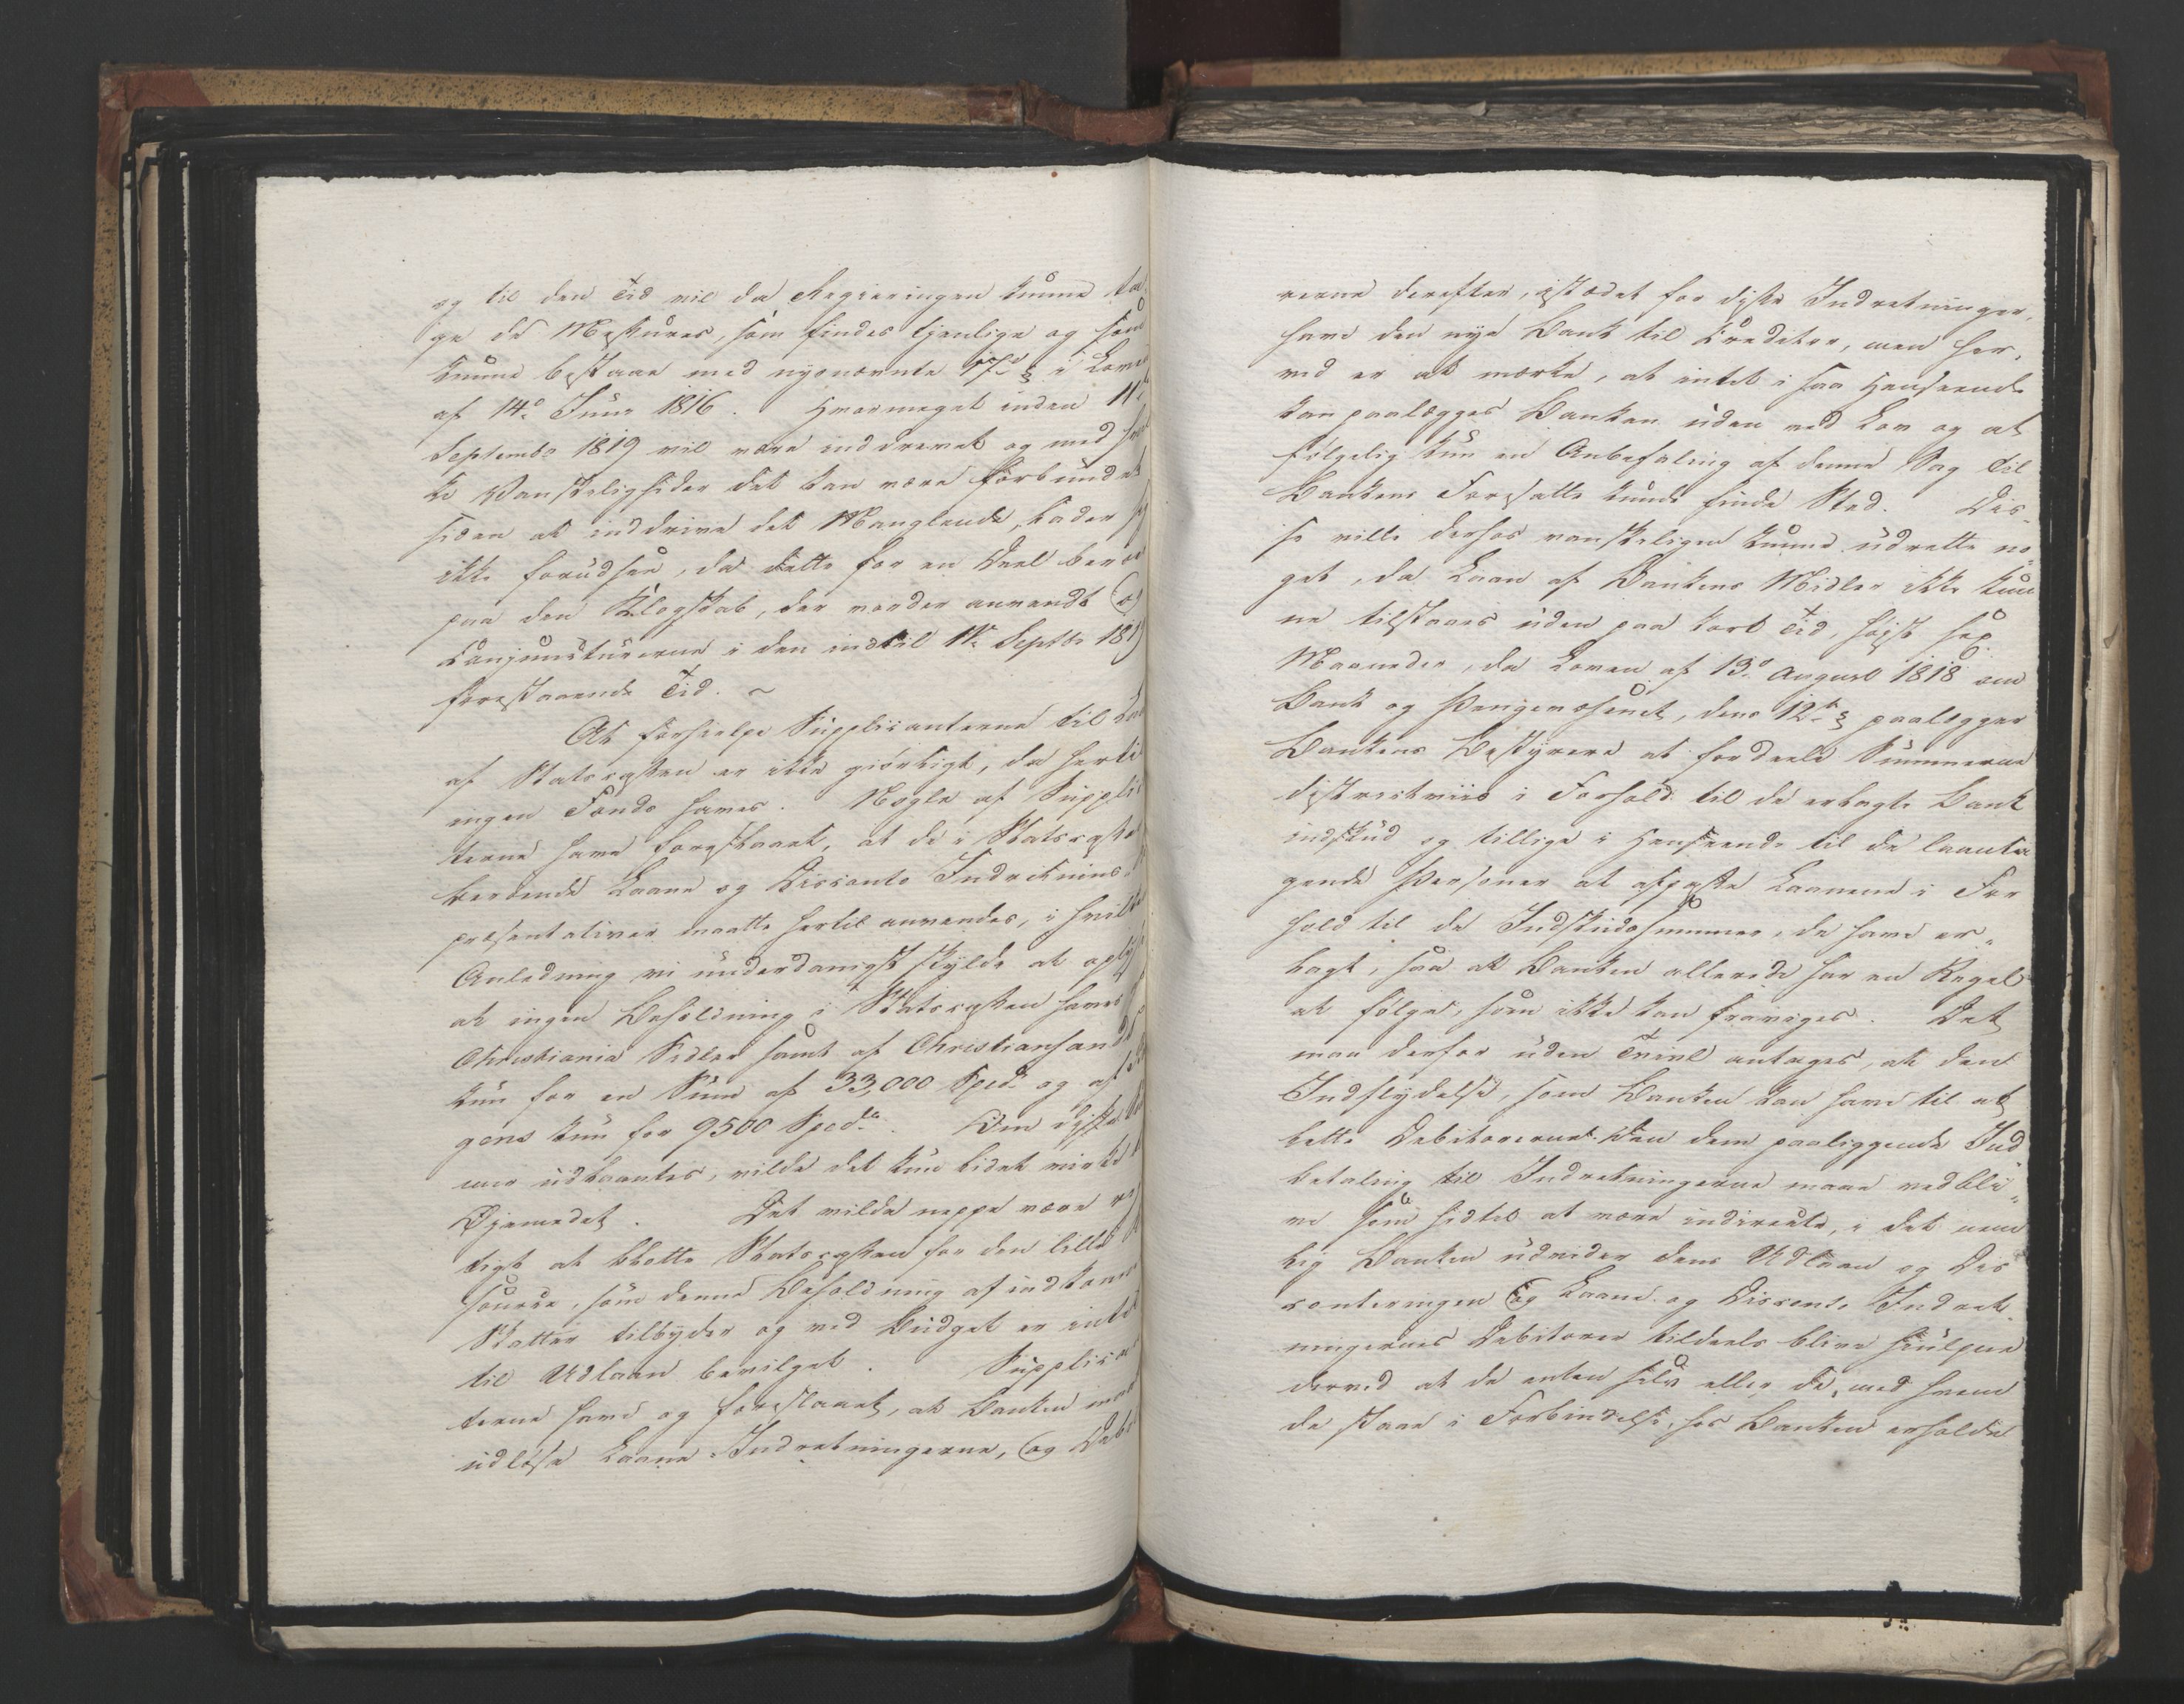 og til den Tid vil da Regieringen kunne ta-
ge de Messures, som findes tjenlige og som
kunne bestaae med nysnævnte 17de § i Loven
af 14de Juni 1816. Hvormeget inden 11te
Septembr 1819 vil være inddrevet og med hvil
ke Vanskeligheder det kan være forbundet
siden at inddrive det Manglende, lader sig
ikke forudsee, da dette for en Deel beroer
paa den Klogskab, der vorder anvendt og
Conjuncturerne i den indtil 11te Septbr 1819
forestaaende Tid. ~
At forhielpe Supplicanterne til Laan
af Statscassen er ikke giørligt, da hertil
ingen Fonds haves. Nogle af Supplican
terne have foreslaaet, at de i Statscassen
beroende Laane og Disconto Indretnings
præsentativer maatte hertil anvendes, i hvilken
Anledning vi underdanigst skylde at oplyse
at ingen Beholdning i Statscassen haves
Christiania Sedler samt af Christiansands
kun for en Sum af 33,000 Spd. og af
gens kun for 9500 Spd. Om disse
mer udlaantes, vilde det kun lidet virke
Øjemedet. Det vilde neppe være rig
tigt at blotte Statscassen for den lille Re
source, som denne Beholdning af indkomne
Skatter tilbyder og ved Budget er intet
til Udlaan bevilget. Supplican
terne have og foreslaaet, at Banken maatte
udløse Laane-Indretningerne, og Debi
rerne derefter, istædet for disse Indretninger,
have den nye Bank til Creditor, men her-
ved er at mærke, at intet i saa Henseende
kan paalægges Banken uden ved Lov og at
følgelig kun en Anbefaling af denne Sag til
Bankens Foresatte kunde finde Sted. Dis-
se ville derhos vanskeligen kunne udrette no
get, da Laan af Bankens Midler ikke kun
ne tilstaaes uden paa kort Tid, højst sex
Maaneder, da Loven af 13de August 1818 om
Bank og Pengevæsenet, dens 12te § paalægger
Bankens Bestyrere at fordeele Summerne
districtviis i Forhold til de erlagte Bank
indskud og tillige i Henseende til de laanta
gende Personer at afpasse Laanene i For
hold til de Indskudssummer, de have er-
lagt, saa at Banken allerede har en Regel
at følge, som ikke kan fraviges. Det
maa derfor uden Tvivl antages, at den
Indflydelse, som Banken kan have til at
lette Debitorernes den dem paaliggende Ind
betaling til Indretningerne maae vedbli-
ve som hidtil at være indirecte, i det nem
lig Banken udvider dens Udlaan og Dis
conteringen og Laane og Disconto Indret
ningernes Debitorer tildeels blive hiulpne
derved at de enten selv eller de, med hvem
de staae i Forbindelse, hos Banken erholde